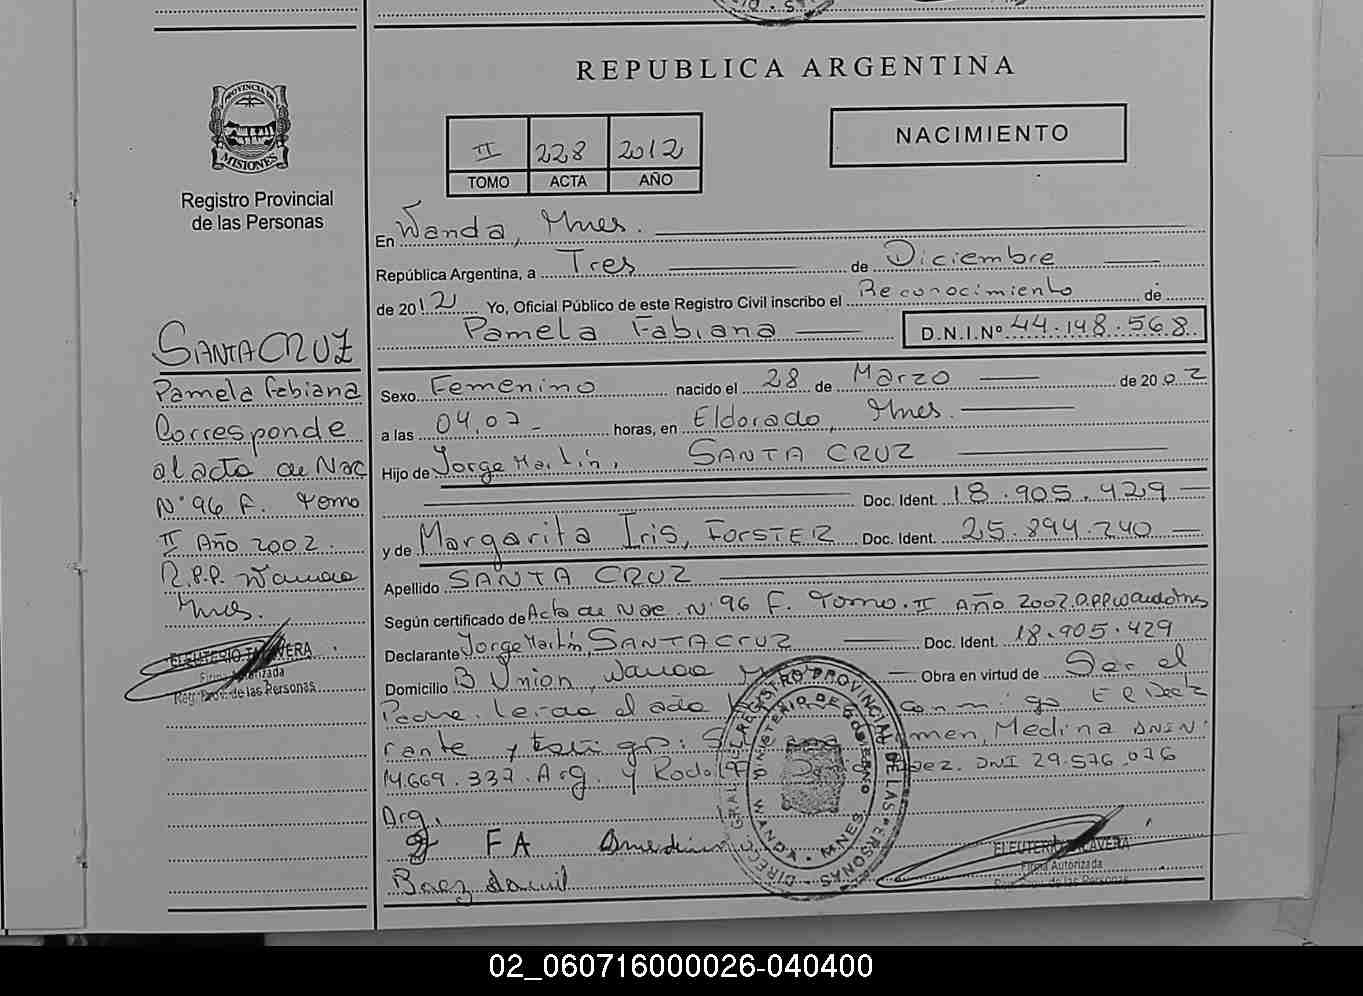 REPUBLICA ARGENTINA
PROVINCIA DE
MISIONES
Registro Provincial
de las Personas
II 228 2012
TOMO ACTA AÑO
NACIMIENTO
En Wanda, Mnes.
República Argentina, a Tres de Diciembre
de 2012 Yo, Oficial Público de este Registro Civil inscribo el Reconocimiento de
Pamela Fabiana D.N.I.Nº 44.148.568
Sexo Femenino nacido el 28 de Marzo de 2002
a las 04.07 horas, en Eldorado, Mnes.
Hijo de Jorge Martín, SANTA CRUZ
Doc. Ident. 18.905.429
y de Margarita Iris, FORSTER Doc. Ident. 25.894.240
Apellido SANTA CRUZ
Según certificado de Acta de Nac. N°96 F. Tomo. II Año 2002.
Declarante Jorge Martín, SANTA CRUZ Doc. Ident. 18.905.429
Domicilio B Union, Wanda Obra en virtud de Ser el
Padre. Leída el acta conmigo El Decla
rante y Medina DNI N°
14.669.337. Arg. y Rodolfo Baez. DNI 29.576.076
Arg.
FA
Baez
ELEUTERIO TALAVERA
Firma Autorizada
Reg. Prov. de las Personas
DIREC. GRAL. DEL REGISTRO PROVINCIAL DE LAS PERSONAS
MINISTERIO DE GOBIERNO
WANDA - MNES.
SANTA CRUZ
Pamela Fabiana
Corresponde
al acta de Nac
N°96 F. Tomo
II Año 2002.
R.P.P. Wanda
Mnes.
ELEUTERIO TALAVERA
Firma Autorizada
Reg. Prov. de las Personas
02_060716000026-040400